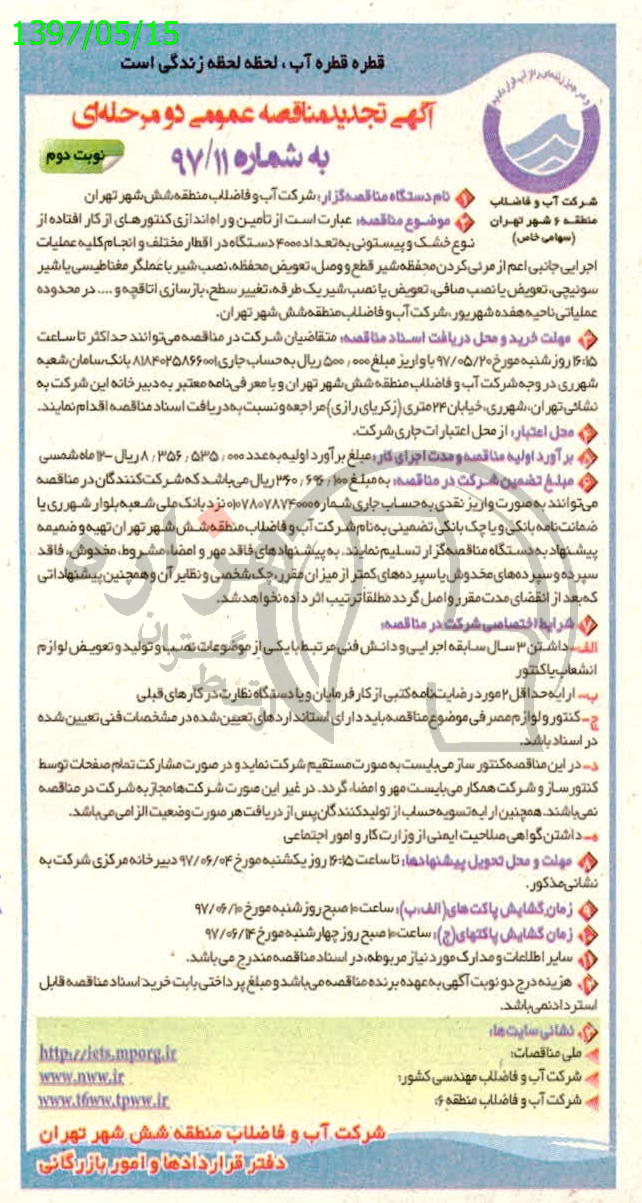 1397/05/15
قطره قطره آب ، لحظه لحظه زندگی است
آگهی تجدیدمناقصه عمومی دو مرحله‌ای
به شماره ۹۷/۱۱
نوبت دوم
شرکت آب و فاضلاب
منطقه ۶ شهر تهران
(سهامی خاص)
نام دستگاه مناقصه‌گزار: شرکت آب و فاضلاب منطقه شش شهر تهران
موضوع مناقصه: عبارت است از تأمین و راه‌اندازی کنتورهای از کار افتاده از
نوع خشک و پیستونی به تعداد ۴۰۰۰ دستگاه در اقطار مختلف و انجام کلیه عملیات
اجرایی جانبی اعم از مرئی کردن محفظه شیر قطع و وصل، تعویض محفظه، نصب شیر با عملگر مغناطیسی یا شیر
سوئیچی، تعویض یا نصب صافی، تعویض یا نصب شیر یک طرفه، تغییر سطح، بازسازی اتاقچه و .... در محدوده
عملیاتی ناحیه هفده شهریور، شرکت آب و فاضلاب منطقه شش شهر تهران.
مهلت خرید و محل دریافت اسناد مناقصه: متقاضیان شرکت در مناقصه می‌توانند حداکثر تا ساعت
۱۶:۱۵ روز شنبه مورخ ۹۷/۰۵/۲۰ با واریز مبلغ ۵۰۰,۰۰۰ ریال به حساب جاری ۸۱۸۴۰۲۵۸۶۶۰۰۱ بانک سامان شعبه
شهرری در وجه شرکت آب و فاضلاب منطقه شش شهر تهران و با معرفی‌نامه معتبر به دبیرخانه این شرکت به
نشانی تهران، شهرری، خیابان ۲۴ متری (زکریای رازی) مراجعه و نسبت به دریافت اسناد مناقصه اقدام نمایند.
محل اعتبار: از محل اعتبارات جاری شرکت.
برآورد اولیه مناقصه و مدت اجرای کار: مبلغ برآورد اولیه به عدد ۸,۳۵۶,۵۳۵,۰۰۰ ریال -۱۲ ماه شمسی
مبلغ تضمین شرکت در مناقصه: به مبلغ ۳۶۰,۶۹۶,۱۰۰ ریال می‌باشد که شرکت‌کنندگان در مناقصه
می‌توانند به صورت واریز نقدی به حساب جاری شماره ۰۱۰۷۸۰۷۸۷۴۰۰۰ نزد بانک ملی شعبه بلوار شهرری یا
ضمانت‌نامه بانکی و یا چک بانکی تضمینی به نام شرکت آب و فاضلاب منطقه شش شهر تهران تهیه و ضمیمه
پیشنهاد به دستگاه مناقصه‌گزار تسلیم نمایند. به پیشنهادهای فاقد مهر و امضا، مشروط، مخدوش، فاقد
سپرده و سپرده‌های مخدوش یا سپرده‌های کمتر از میزان مقرر، چک شخصی و نظایر آن و همچنین پیشنهاداتی
که بعد از انقضای مدت مقرر واصل گردد مطلقا ترتیب اثر داده نخواهد شد.
شرایط اختصاصی شرکت در مناقصه:
الف- داشتن ۳ سال سابقه اجرایی و دانش فنی مرتبط با یکی از موضوعات نصب و تولید و تعویض لوازم
انشعاب یا کنتور
ب- ارایه حداقل ۲ مورد رضایت‌نامه کتبی از کارفرمایان و یا دستگاه نظارت در کارهای قبلی
ج- کنتور و لوازم مصرفی موضوع مناقصه باید دارای استانداردهای تعیین شده در مشخصات فنی تعیین شده
در اسناد باشد.
د- در این مناقصه کنتور ساز می‌بایست به صورت مستقیم شرکت نماید و در صورت مشارکت تمام صفحات توسط
کنتور ساز و شرکت همکار می‌بایست مهر و امضاء گردد. در غیر این صورت شرکت‌ها مجاز به شرکت در مناقصه
نمی‌باشند. همچنین ارایه تسویه حساب از تولیدکنندگان پس از دریافت هر صورت وضعیت الزامی می‌باشد.
ه- داشتن گواهی صلاحیت ایمنی از وزارت کار و امور اجتماعی
مهلت و محل تحویل پیشنهادها: تا ساعت ۱۶:۱۵ روز یکشنبه مورخ ۹۷/۰۶/۰۴ دبیرخانه مرکزی شرکت به
نشانی مذکور.
زمان گشایش پاکت‌های (الف،ب): ساعت ۱۰ صبح روز شنبه مورخ ۹۷/۰۶/۱۰
زمان گشایش پاکتهای (ج): ساعت ۱۰ صبح روز چهارشنبه مورخ ۹۷/۰۶/۱۴
سایر اطلاعات و مدارک مورد نیاز مربوطه، در اسناد مناقصه مندرج می‌باشد.
هزینه درج دو نوبت آگهی به عهده برنده مناقصه می‌باشد و مبلغ پرداختی بابت خرید اسناد مناقصه قابل
استرداد نمی‌باشد.
نشانی سایت‌ها:
ملی مناقصات: http://iets.mporg.ir
شرکت آب و فاضلاب مهندسی کشور: www.nww.ir
شرکت آب و فاضلاب منطقه ۶: www.t6ww.tpww.ir
شرکت آب و فاضلاب منطقه شش شهر تهران
دفتر قراردادها و امور بازرگانی